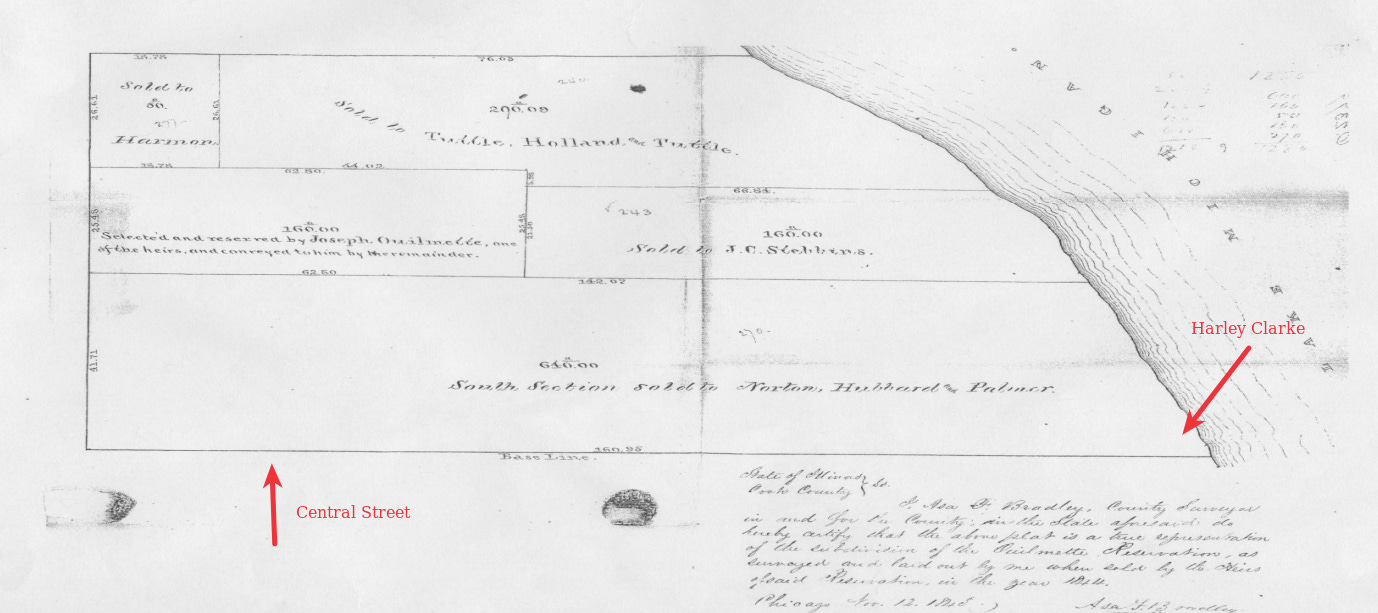 18.75
76.03
Sold to
80.
277-
Harmon.
26.61
26.61
18.75
Sold to
290.09
Tuttle, Holland and Tuttle.
44.02
62.50
66.84
243
160.00
Sold to J.C. Stebbins.
160.00
Selected and reserved by Joseph Ouilmette, one
of the heirs, and conveyed to him by the remainder.
25.45
25.45
62.50
142.07
270-
41.71
640.00
South Section sold to Norton, Hubbard and Palmer.
160.95
Base Line.
LAKE MICHIGAN
Harley Clarke
Central Street
State of Illinois
Cook County } ss.
I Asa F. Bradley, County Surveyor
in and for the County, in the State aforesaid do
hereby certify that the above plat is a true representation
of the subdivision of the Ouilmette Reservation, as
surveyed and laid out by me when sold by the Heirs
of said Reservation, in the year 1844.
Chicago Nov. 12.
Asa F. Bradley